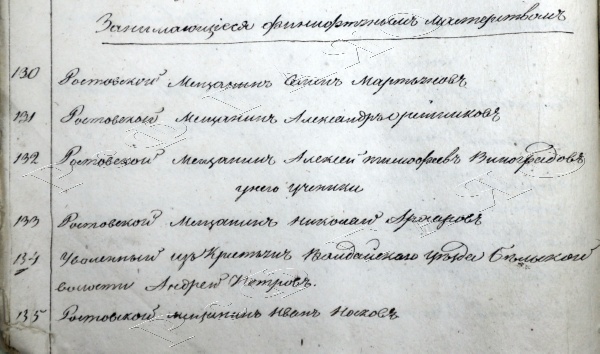 Занимающіеся финифтянымъ мастерствомъ
130 Ростовской Мещанинъ Мартыновъ
131 Ростовской Мещанинъ Александръ Орешниковъ
132 Ростовской Мещанинъ Алексей Тимофеевъ Виноградовъ
у него ученики
133 Ростовской Мещанинъ Николай
134 Уволенный изъ Крестьян Валдайского уезда
волости Андрей Петровъ.
135 Ростовской мещанинъ Иванъ Носковъ